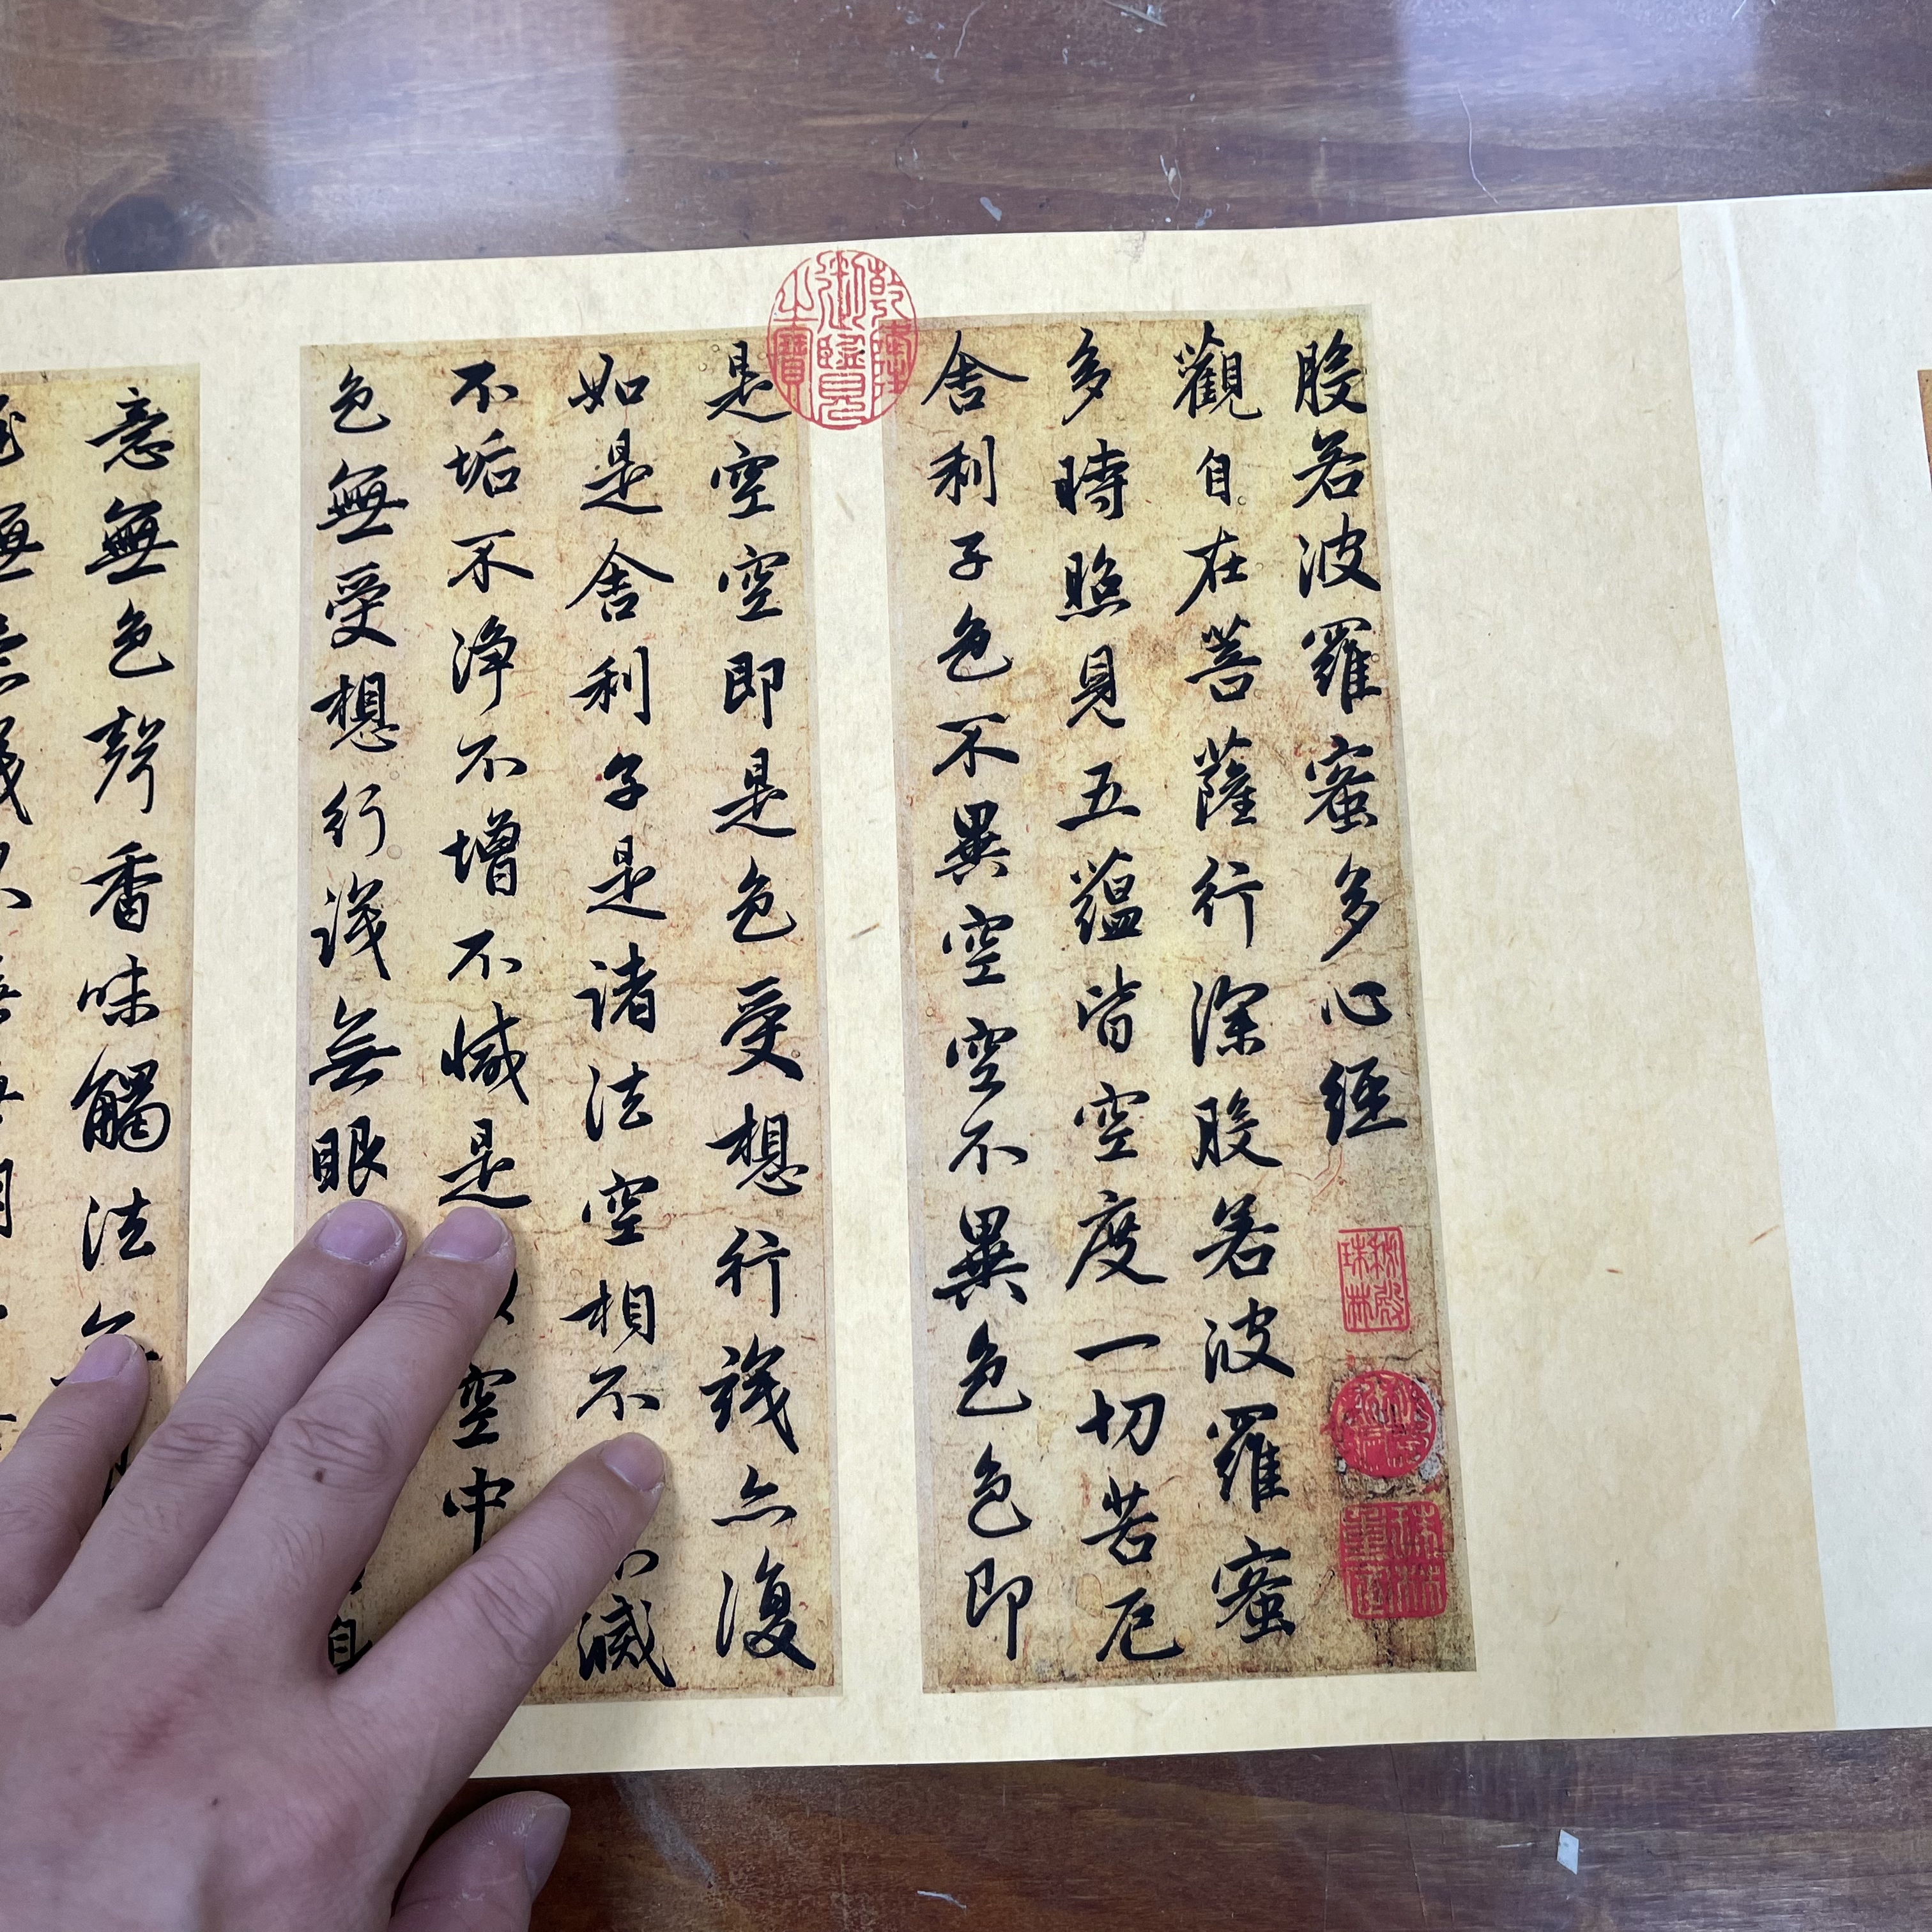 般若波羅蜜多心經
觀自在菩薩行深般若波羅蜜
多時照見五蘊皆空度一切苦厄
舍利子色不異空空不異色色即
是空空即是色受想行識亦復
如是舍利子是諸法空相不
滅
不垢不淨不增不減是
空中
色無受想行識無眼
意無色聲香味觸法
乾隆御覽之寶
秘殿珠林